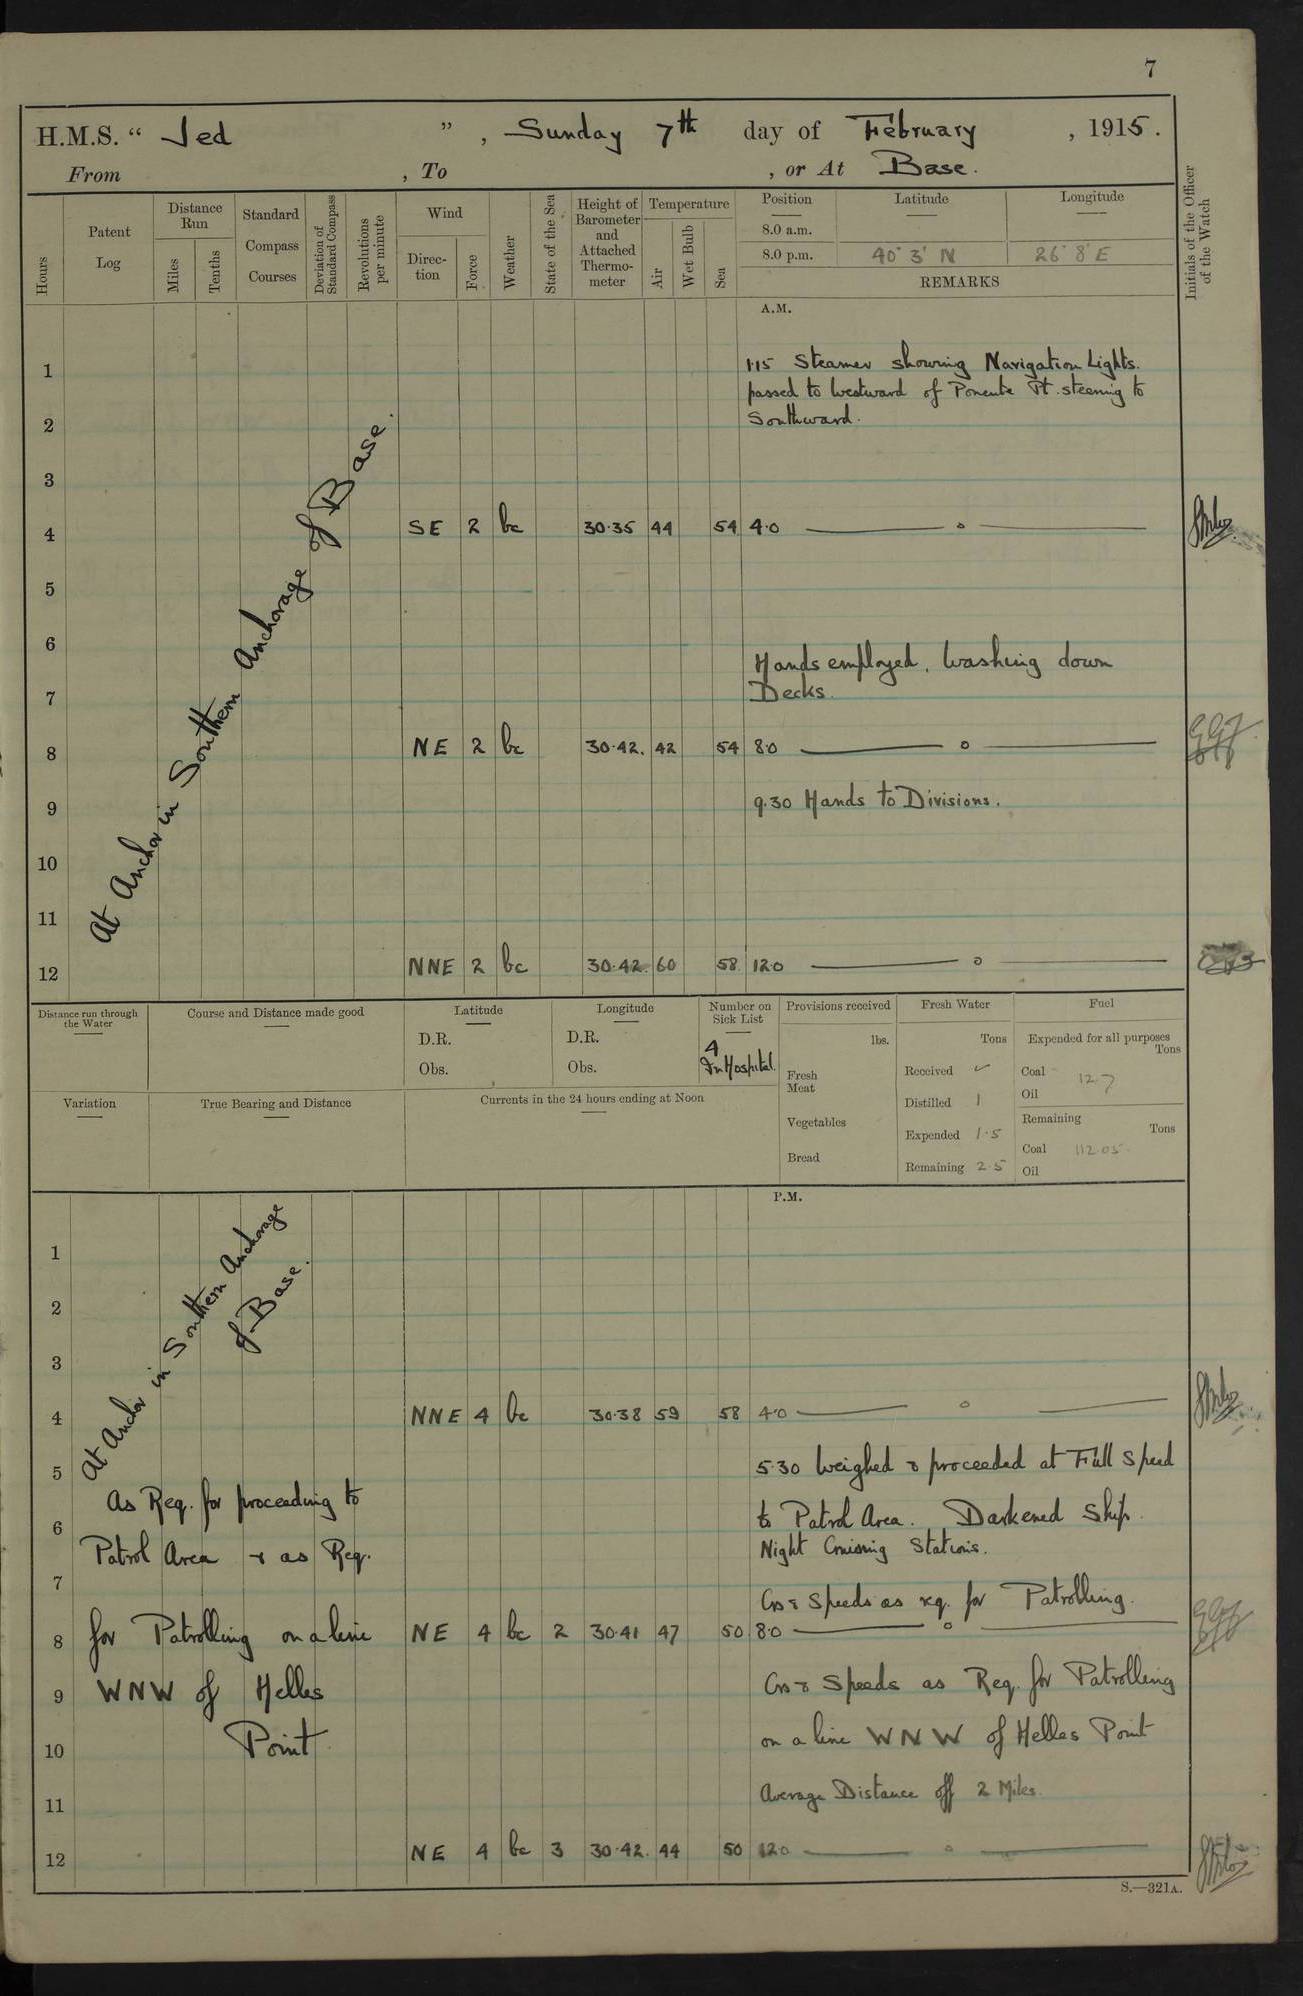 7
H.M.S. “ Jed ” , Sunday 7th day of February , 1915.
From , To , or At Base.
Hours
Patent Log
Distance Run
Miles
Tenths
Standard Compass Courses
Deviation of Standard Compass
Revolutions per minute
Wind
Direc-tion
Force
Weather
State of the Sea
Height of Barometer and Attached Thermo-meter
Temperature
Air
Wet Bulb
Sea
Position
Latitude
Longitude
8.0 a.m.
8.0 p.m. 40° 3' N 26° 8' E
REMARKS
Initials of the Officer of the Watch
A.M.
1 1.15 Steamer showing Navigation Lights.
passed to Westward of Ponente Pt. steering to
2 Southward.
3
4 SE 2 bc 30.35 44 54 4.0
5
6
Hands employed, Washing down
7 Decks.
8 NE 2 bc 30.42. 42 54 8.0
9 9.30 Hands to Divisions.
10
11
12 NNE 2 bc 30.42. 60 58 12.0
At Anchor in Southern Anchorage of Base.
Distance run through the Water
Course and Distance made good
Latitude
D.R.
Obs.
Longitude
D.R.
Obs.
Number on Sick List
4
In Hospital.
Provisions received
lbs.
Fresh Meat
Vegetables
Bread
Fresh Water
Tons
Received ✓
Distilled 1
Expended 1.5
Remaining 2.5
Fuel
Expended for all purposes
Tons
Coal 12.7
Oil
Remaining
Tons
Coal 112.05
Oil
Variation
True Bearing and Distance
Currents in the 24 hours ending at Noon
P.M.
At Anchor in Southern Anchorage
of Base.
1
2
3
4 NNE 4 bc 30.38 59 58 4.0
5 5.30 Weighed & proceeded at Full Speed
As Req. for proceeding to
6 to Patrol Area. Darkened Ship.
Patrol Area & as Req. Night Cruising Stations.
7 Cos & Speeds as rq. for Patrolling.
8 for Patrolling on a line NE 4 bc 2 30.41 47 50 8.0
9 WNW of Helles Cos & Speeds as Req. for Patrolling
10 Point on a line WNW of Helles Point
11 Average Distance off 2 Miles.
12 NE 4 bc 3 30.42. 44 50 12.0
S.—321A.